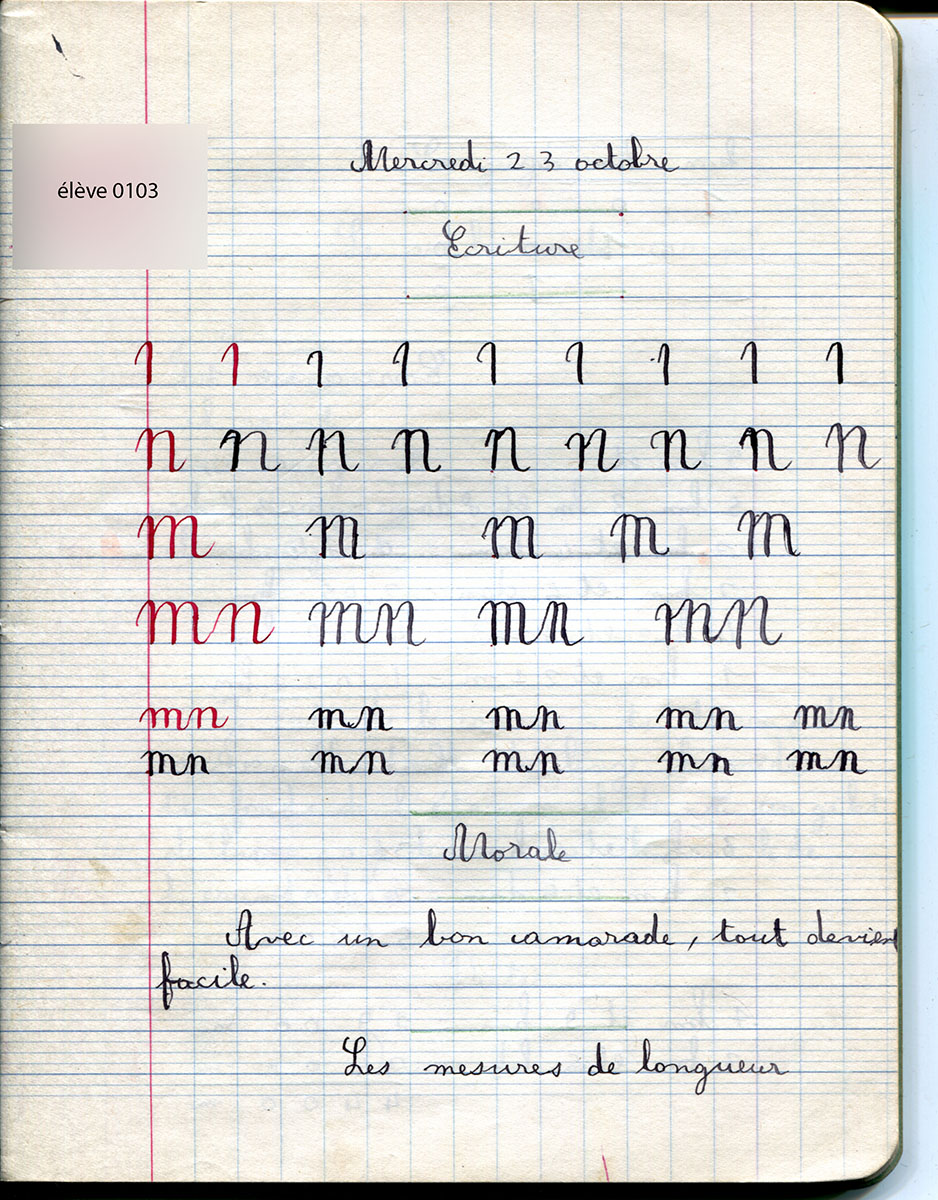 Mercredi 23 octobre
élève 0103
Ecriture
1 1 1 1 1 1 1 1 1
n n n n n n n n n
m m m m m
mn mn mn mn
mn mn mn mn mn
mn mn mn mn mn
Morale
Avec un bon camarade, tout devient
facile.
Les mesures de longueur